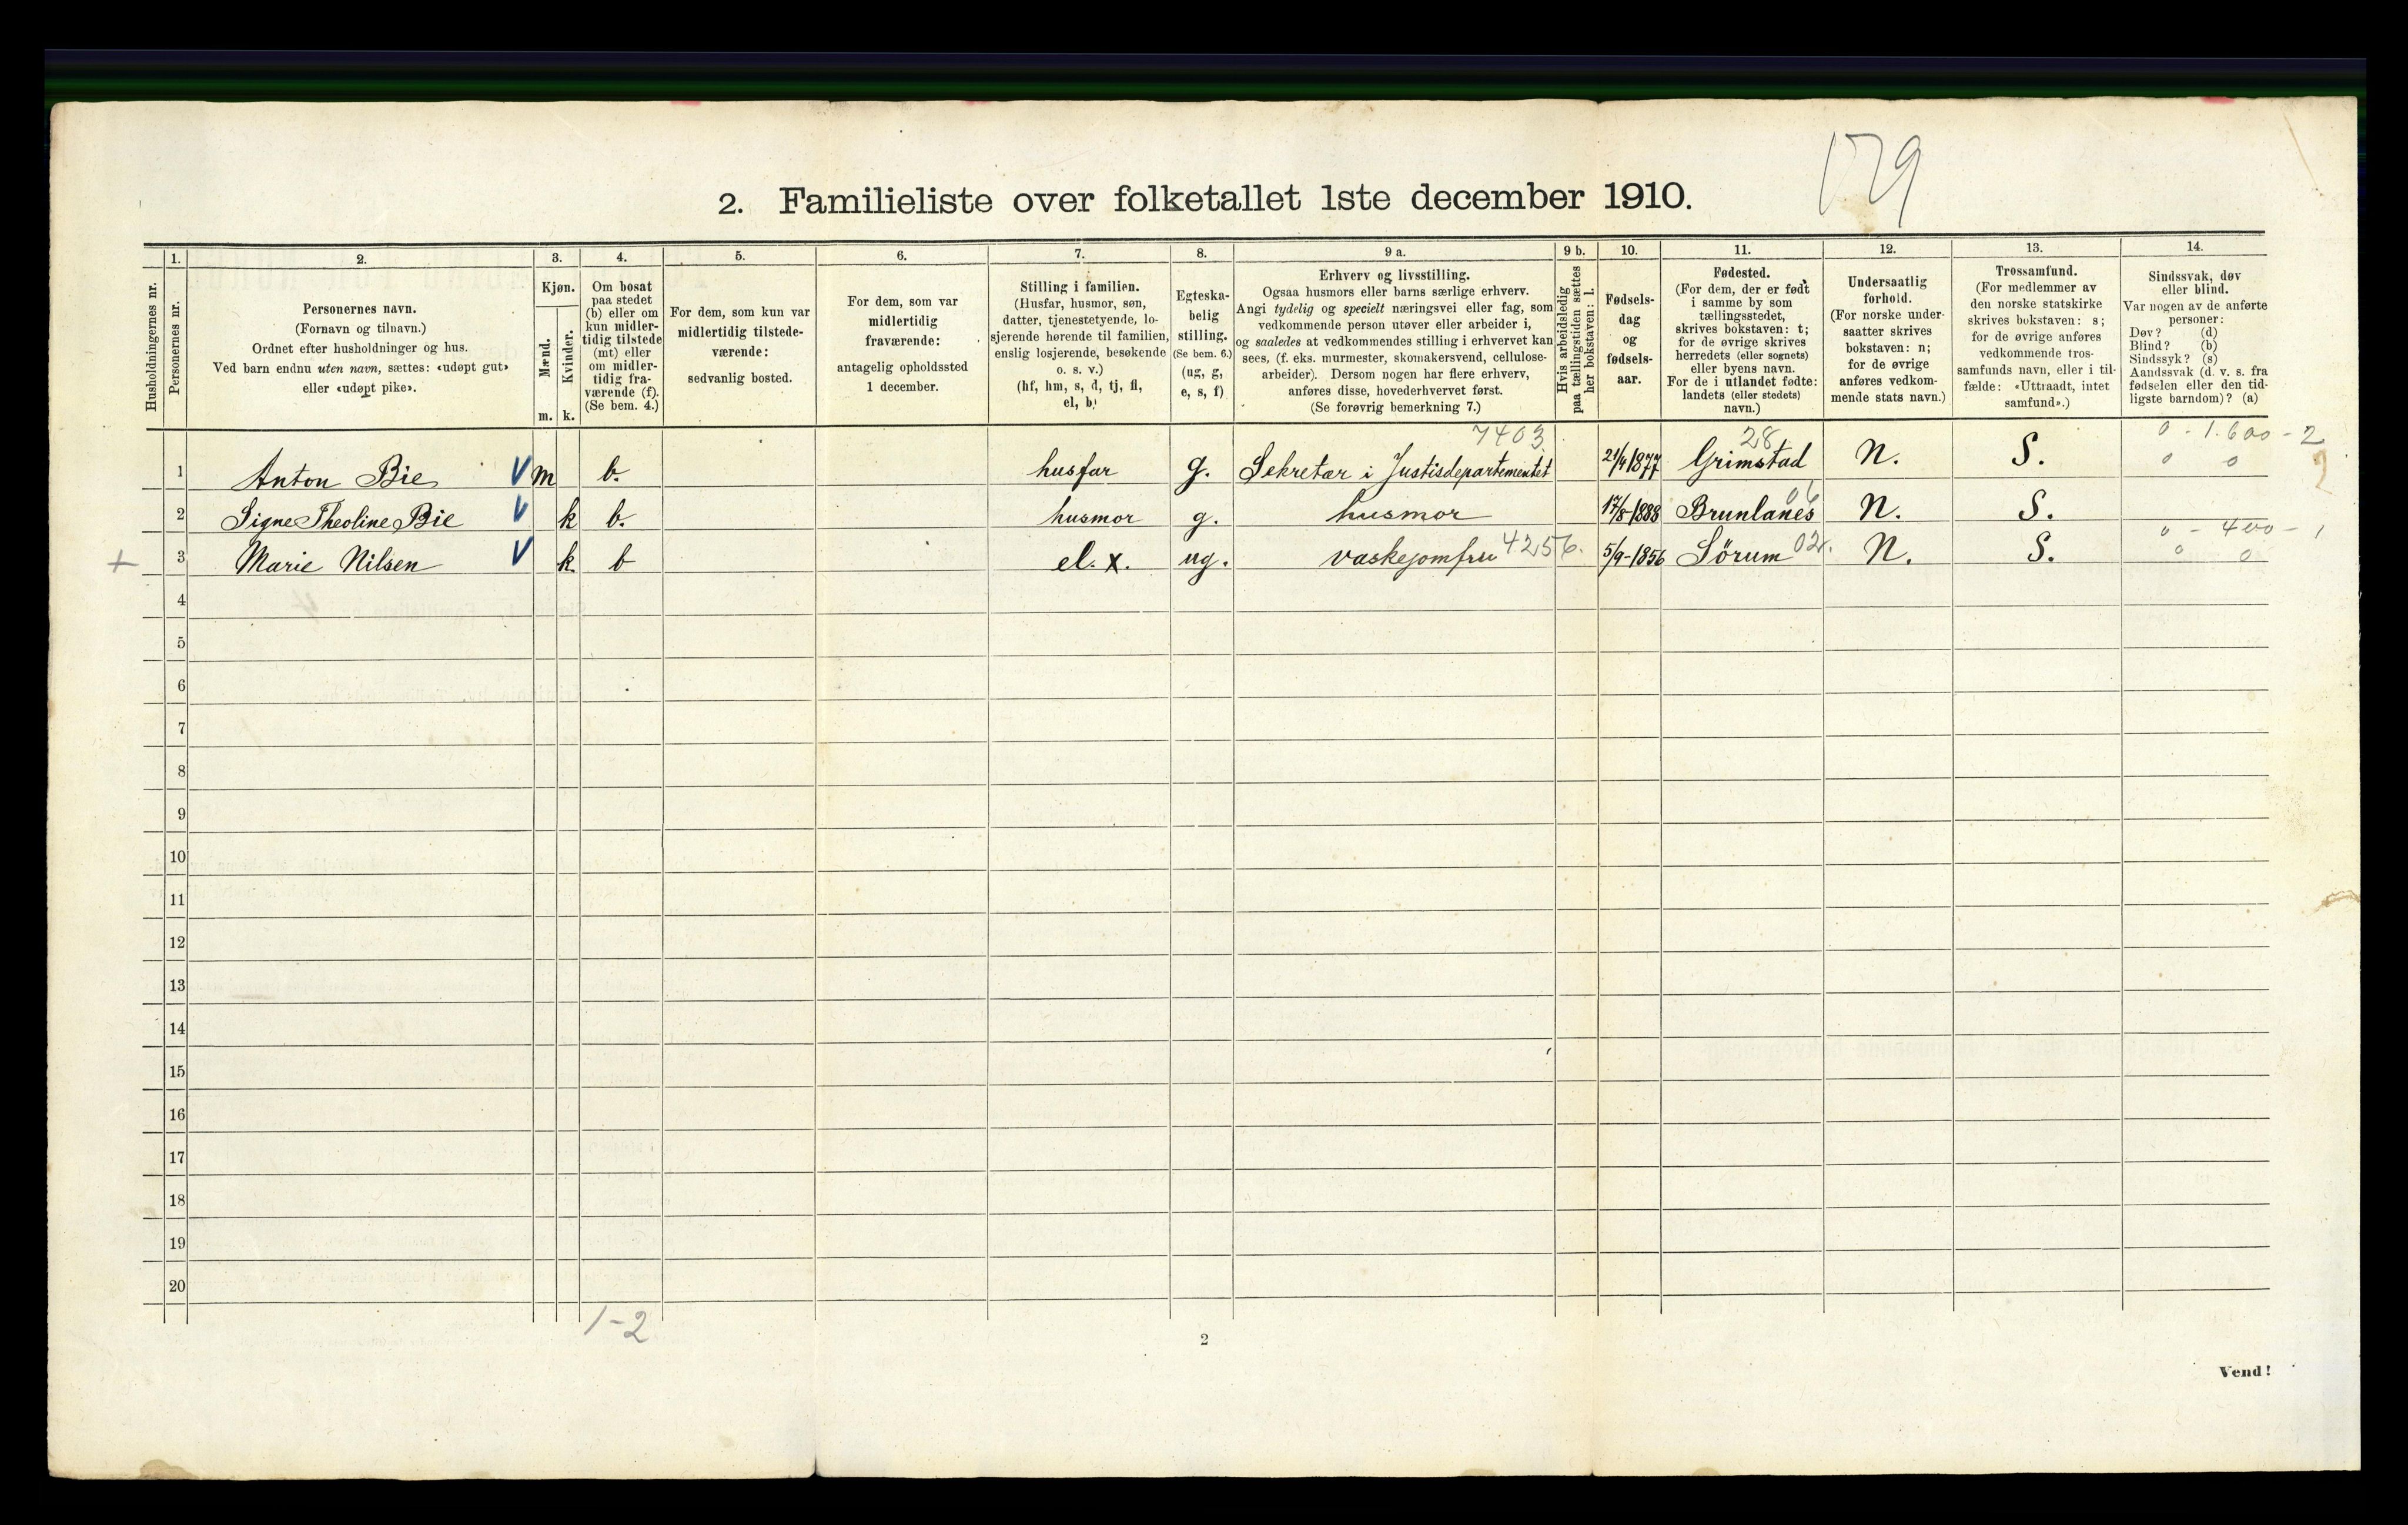 179
2. Familieliste over folketallet 1ste december 1910.
Husholdningernes nr.
1.
Personernes nr.
2.
Personernes navn.
(Fornavn og tilnavn.)
Ordnet efter husholdninger og hus.
Ved barn endnu uten navn, sættes: «udøpt gut»
eller «udøpt pike».
3.
Kjøn.
Mænd.
Kvinder.
m. k.
4.
Om bosat
paa stedet
(b) eller om
kun midler-
tidig tilstede
(mt) eller
om midler-
tidig fra-
værende (f).
(Se bem. 4.)
5.
For dem, som kun var
midlertidig tilstede-
værende:
sedvanlig bosted.
6.
For dem, som var
midlertidig
fraværende:
antagelig opholdssted
1 december.
7.
Stilling i familien.
(Husfar, husmor, søn,
datter, tjenestetyende, lo-
sjerende hørende til familien,
enslig losjerende, besøkende
o. s. v.)
(hf, hm, s, d, tj, fl,
el, b)
8.
Egteska-
belig
stilling.
(Se bem. 6.)
(ug, g,
e, s, f)
9 a.
Erhverv og livsstilling.
Ogsaa husmors eller barns særlige erhverv.
Angi tydelig og specielt næringsvei eller fag, som
vedkommende person utøver eller arbeider i,
og saaledes at vedkommendes stilling i erhvervet kan
sees, (f. eks. murmester, skomakersvend, cellulose-
arbeider). Dersom nogen har flere erhverv,
anføres disse, hovederhvervet først.
(Se forøvrig bemerkning 7.)
9 b.
Hvis arbeidsledig
paa tællingstiden sættes
her bokstaven: l.
10.
Fødsels-
dag
og
fødsels-
aar.
11.
Fødested.
(For dem, der er født
i samme by som
tællingsstedet,
skrives bokstaven: t;
for de øvrige skrives
herredets (eller sognets)
eller byens navn.
For de i utlandet fødte:
landets (eller stedets)
navn.)
12.
Undersaatlig
forhold.
(For norske under-
saatter skrives
bokstaven: n;
for de øvrige
anføres vedkom-
mende stats navn.)
13.
Trossamfund.
(For medlemmer av
den norske statskirke
skrives bokstaven: s;
for de øvrige anføres
vedkommende tros-
samfunds navn, eller i til-
fælde: «Uttraadt, intet
samfund».)
14.
Sindssvak, døv
eller blind.
Var nogen av de anførte
personer:
Døv? (d)
Blind? (b)
Sindssyk? (s)
Aandssvak (d. v. s. fra
fødselen eller den tid-
ligste barndom)? (a)
7403 28 0 - 1.600 - 2
1 Anton Bie V m b. husfar g. Sekretær i Justisdepartementet 21/4 1877 Grimstad N. S. 0 0 2
2 Signe Theoline Bie V k b. husmor g. husmor 17/8-1888 Brunlanes 06 N. S.
0 - 400 - 1
+ 3 Marie Nilsen V k b el. x. ug. vaskejomfru 4256. 5/9-1856 Sörum 02. N. S. 0 0
4
5
6
7
8
9
10
11
12
13
14
15
16
17
18
19
20
1-2
2
Vend!